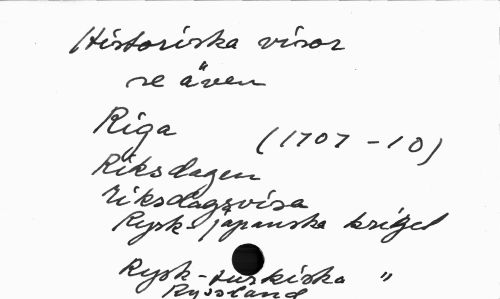 Historiska visor
se även
Riga (1707-10)
Riksdagen
Riksdagsvisa
Rysk-japanska kriget
Rysk-turkiska "
Ryssland